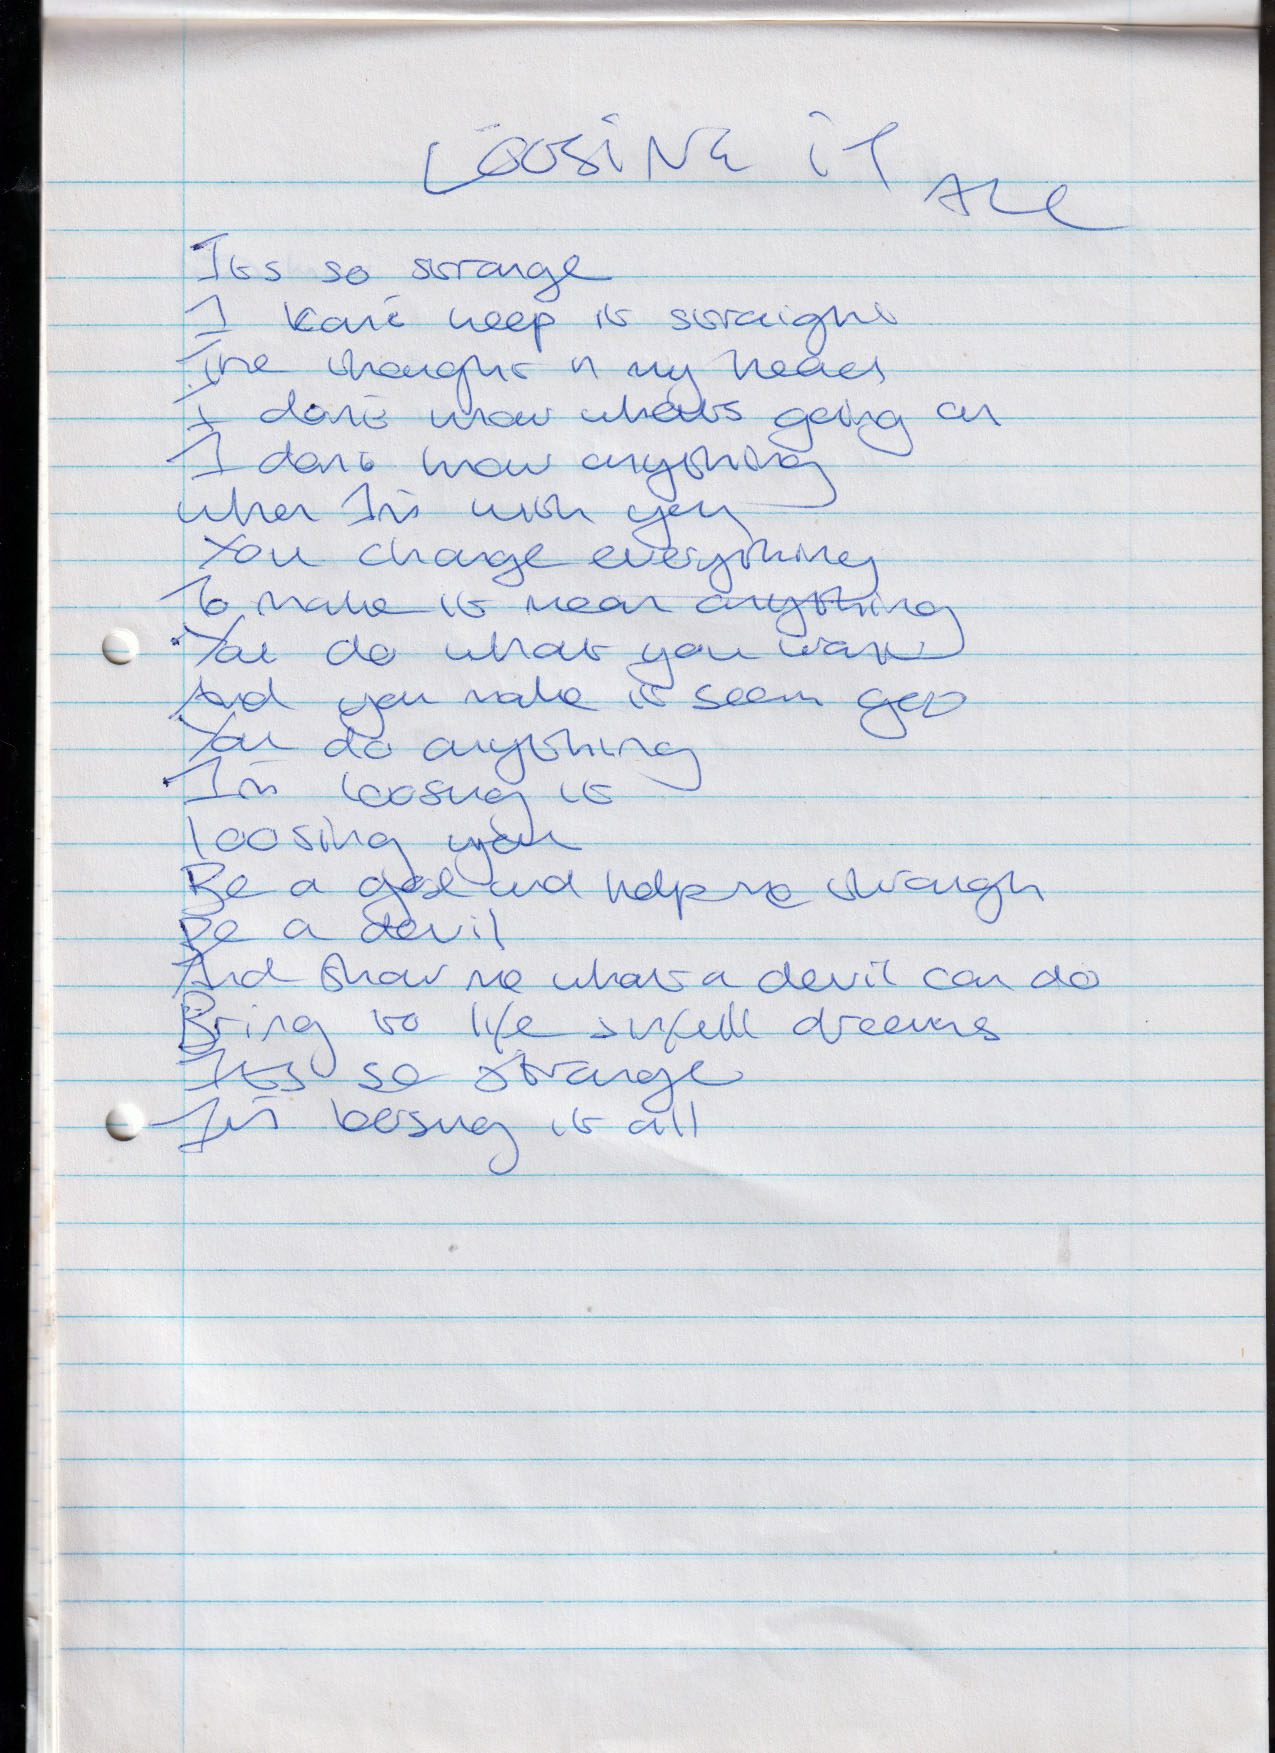 LOOSING it ALL
Its so strange
I can't keep it straight
The thought in my head
I don't know whats going on
I don't know anything
when I'm with you
You change everything
To make it mean anything
You do what you want
And you make it seem good
You do anything
I'm loosing it
loosing you
Be a god and help me through
Be a devil
And show me what a devil can do
Bring to life sinfull dreams
Its so strange
I'm loosing it all